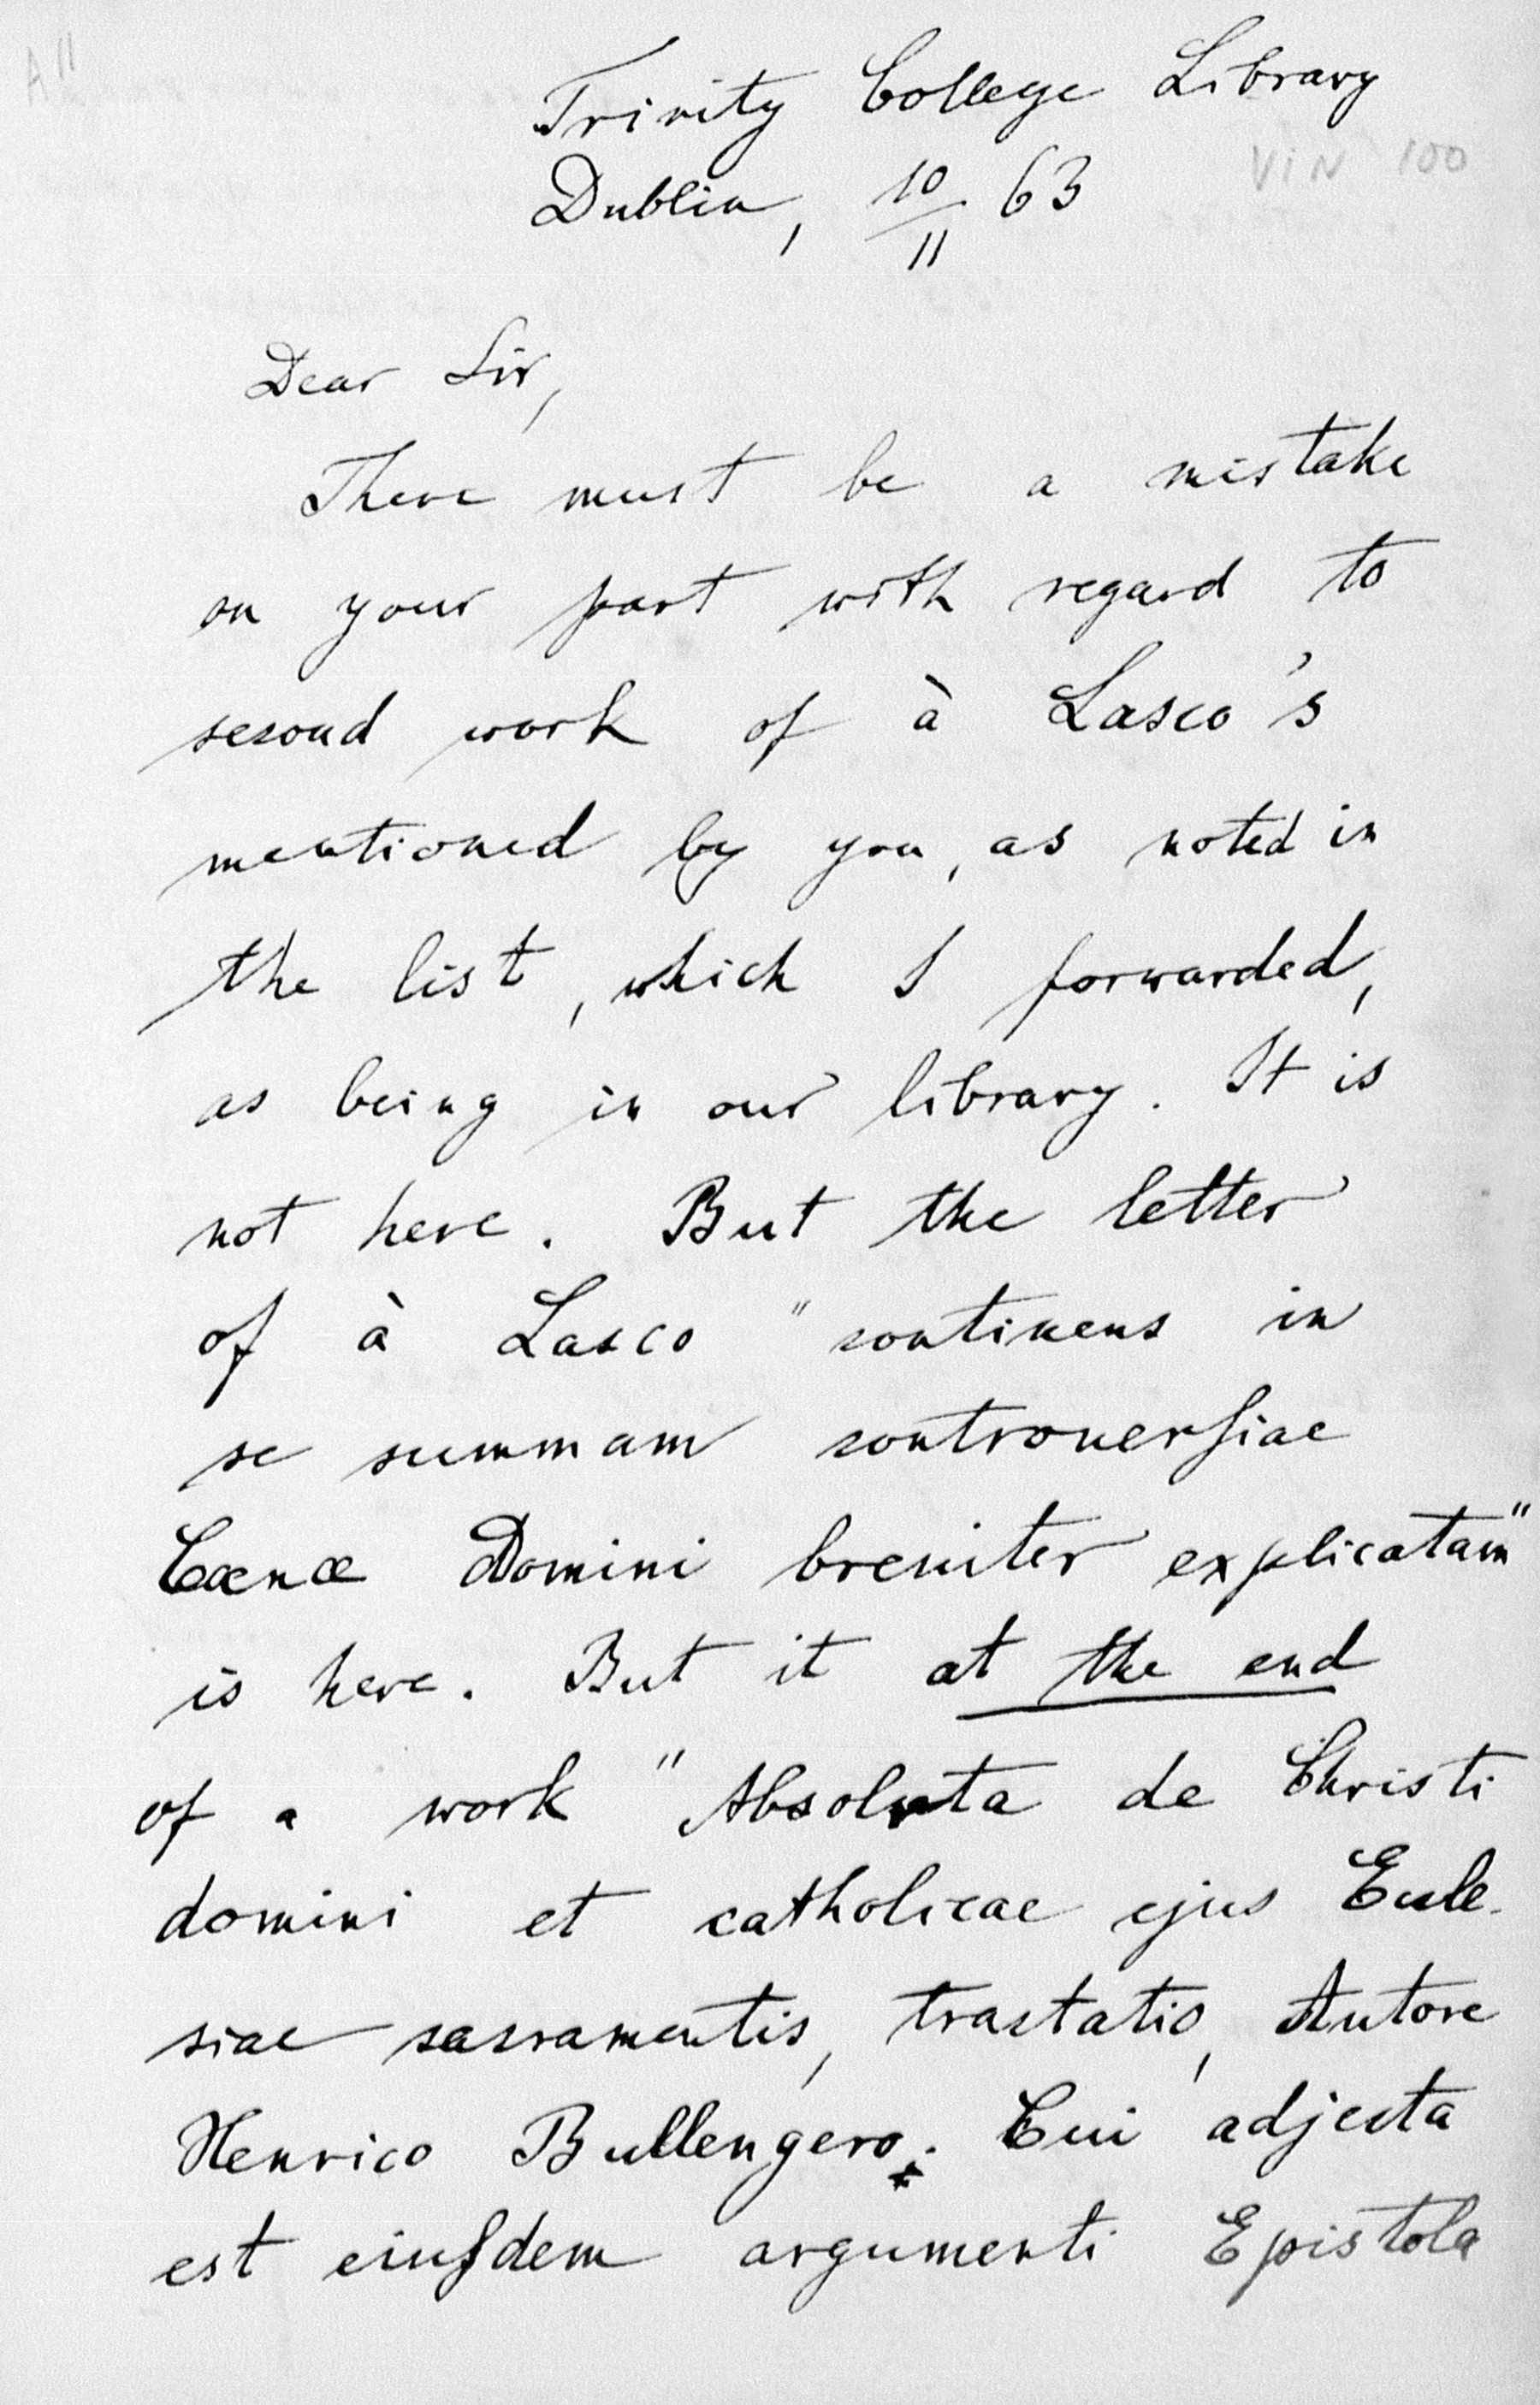 A11
Trinity College Library
VIN 100
Dublin, 10/11 63
Dear Sir,
There must be a mistake
on your part with regard to
second work of à Lasco's
mentioned by you, as noted in
the list, which I forwarded,
as being in our library. It is
not here. But the letter
of à Lasco "continens in
se summam controuerſiae
Cœnæ Domini breuiter explicatam"
is here. But it at the end
of a work "Absoluta de Christi
domini et catholicae ejus Eccle-
siae sacramentis, tractatio, Autore
Henrico Bullengero. Cui adjecta
est eiuſdem argumenti Epistola